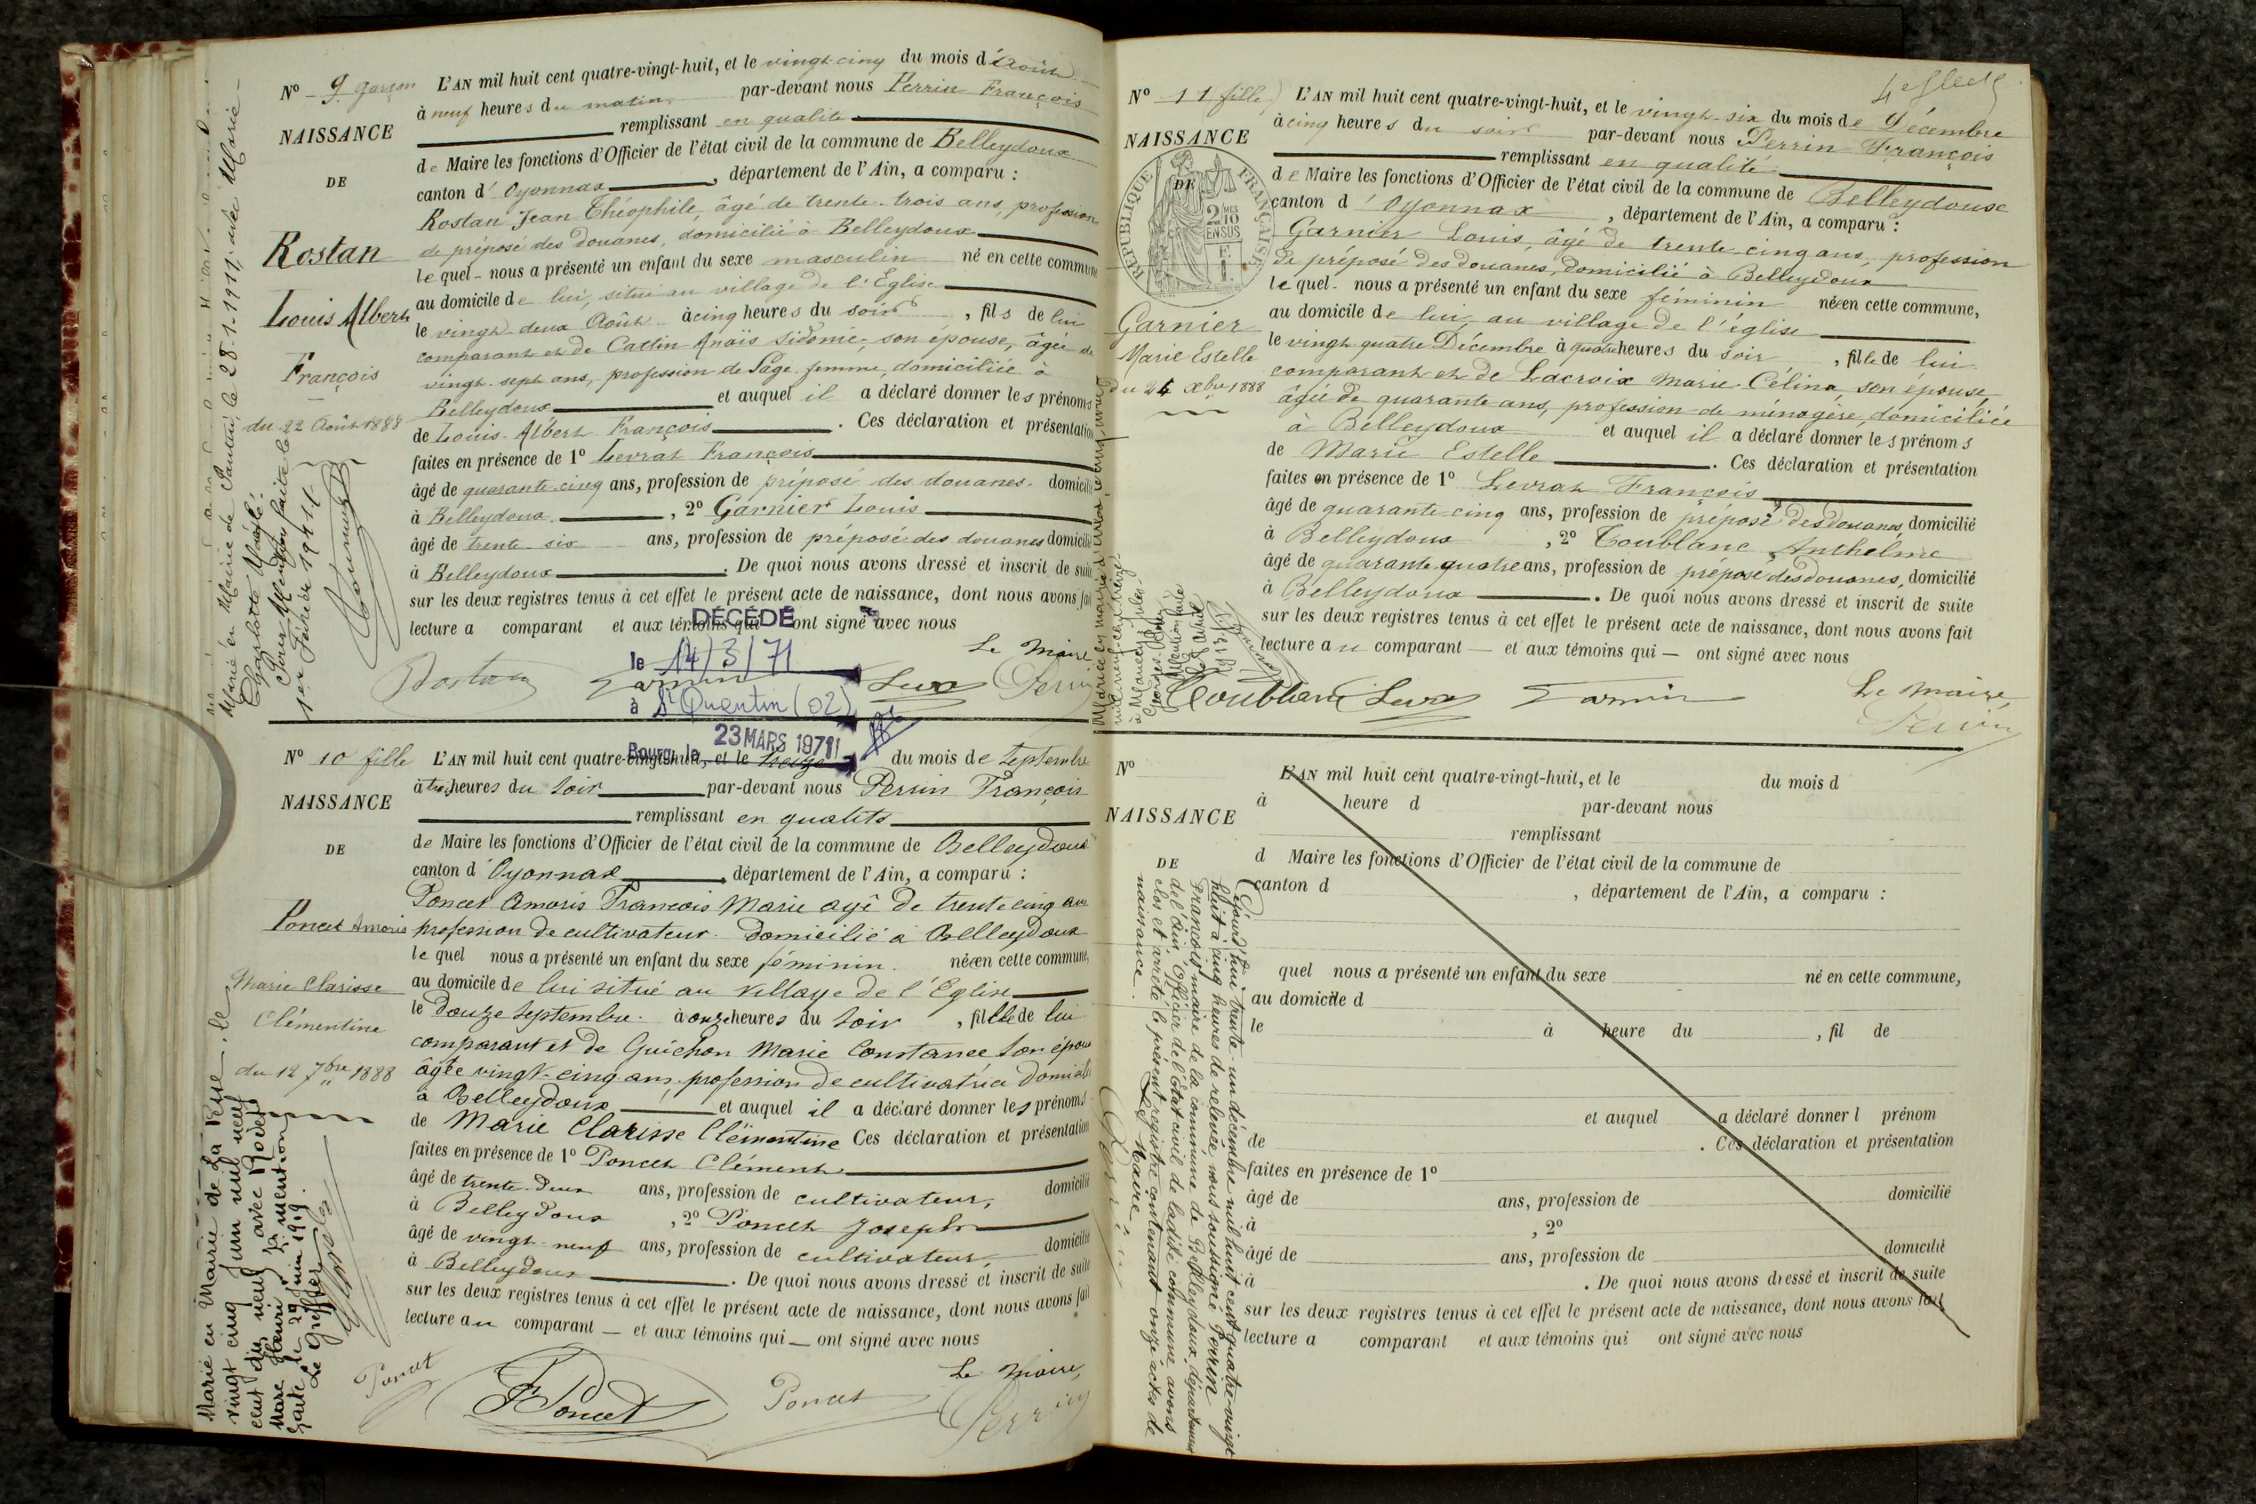 N° 9 garçon
NAISSANCE
DE
Rostan
Louis Albert
François
du 22 Août 1888
L'AN mil huit cent quatre-vingt-huit, et le vingt-cinq du mois d'Août
à neuf heures du matin par-devant nous Perrin François
remplissant en qualité
de Maire les fonctions d'Officier de l'état civil de la commune de Belleydoux
canton d'Oyonnax, département de l'Ain, a comparu :
Rostan Jean Théophile, âgé de trente-trois ans, profession
de préposé des Douanes, domicilié à Belleydoux
lequel nous a présenté un enfant du sexe masculin né en cette commune
au domicile de lui, situé au village de l'Eglise
le vingt-deux Août à cinq heures du soir, fils de lui
comparant et de Cattin Anaïs Sidonie son épouse, âgée de
vingt-sept ans, profession de Sage femme, domiciliée à
Belleydoux et auquel il a déclaré donner les prénoms
de Louis Albert François. Ces déclaration et présentation
faites en présence de 1° Levrat François
âgé de quarante-cinq ans, profession de préposé des douanes, domicilié
à Belleydoux, 2° Garnier Louis
âgé de trente-six ans, profession de préposé des douanes domicilié
à Belleydoux. De quoi nous avons dressé et inscrit de suite
sur les deux registres tenus à cet effet le présent acte de naissance, dont nous avons fait
lecture a comparant et aux témoins qui ont signé avec nous
Le Maire
Rostan Garnier Levra Perrin
DÉCÉDÉ
le 14/3/71
à St Quentin (02)
Bourg, le 23 MARS 1971
Marié en Mairie de Pantin, le 28-1-1911, avec Marie
Charlotte
1er Février 1911
N° 10 fille
NAISSANCE
DE
Poncet Amoris
Marie Clarisse
Clémentine
du 12 7bre 1888
L'AN mil huit cent quatre-vingt-huit, et le treize du mois de Septembre
à trois heures du soir par-devant nous Perrin François
remplissant en qualité
de Maire les fonctions d'Officier de l'état civil de la commune de Belleydoux
canton d'Oyonnax, département de l'Ain, a comparu :
Poncet Amoris François Marie agé de trente cinq ans
profession de cultivateur. Domicilié à Belleydoux
lequel nous a présenté un enfant du sexe féminin. née en cette commune,
au domicile de lui situé au Village de l'Eglise
le Douze Septembre. à onze heures du soir, fille de lui
comparant et de Guichon Marie Constance son épouse
âgée vingt-cinq ans, profession de cultivatrice Domiciliée
à Belleydoux et auquel il a déclaré donner les prénoms
de Marie Clarisse Clémentine Ces déclaration et présentation
faites en présence de 1° Poncet Clément
âgé de trente-deux ans, profession de cultivateur, domicilié
à Belleydoux, 2° Poncet Joseph
âgé de vingt-neuf ans, profession de cultivateur, domicilié
à Belleydoux. De quoi nous avons dressé et inscrit de suite
sur les deux registres tenus à cet effet le présent acte de naissance, dont nous avons fait
lecture au comparant — et aux témoins qui — ont signé avec nous
Le Maire,
Poncet F Poncet Poncet Perrin
Marié en Mairie de La Pesse, le
vingt cinq Juin mil neuf
cent dix neuf avec Rodet
Marc Henri
le 29 Juin 1919.
Le Greffier
4e fleels
N° 11 fille
NAISSANCE
DE
RÉPUBLIQUE FRANÇAISE
2/10 EN SUS
Garnier
Marie Estelle
du 24 Xbre 1888
L'AN mil huit cent quatre-vingt-huit, et le vingt-six du mois de Décembre
à cinq heures du soir par-devant nous Perrin François
remplissant en qualité
de Maire les fonctions d'Officier de l'état civil de la commune de Belleydoux
canton d'Oyonnax, département de l'Ain, a comparu :
Garnier Louis, âgé de trente-cinq ans, profession
de préposé des douanes, domicilié à Belleydoux
lequel nous a présenté un enfant du sexe féminin née en cette commune,
au domicile de lui, au village de l'église
le vingt quatre Décembre à quatre heures du soir, fille de lui
comparant et de Lacroix Marie Célina, son épouse
âgée de quarante ans, profession de ménagère, domiciliée
à Belleydoux et auquel il a déclaré donner les prénoms
de Marie Estelle. Ces déclaration et présentation
faites en présence de 1° Levrat François
âgé de quarante-cinq ans, profession de préposé des douanes, domicilié
à Belleydoux, 2° Toublanc Anthelme
âgé de quarante quatre ans, profession de préposé des douanes, domicilié
à Belleydoux. De quoi nous avons dressé et inscrit de suite
sur les deux registres tenus à cet effet le présent acte de naissance, dont nous avons fait
lecture au comparant — et aux témoins qui — ont signé avec nous
Le Maire,
Toublanc Levra Garnier Perrin
N°
NAISSANCE
DE
L'AN mil huit cent quatre-vingt-huit, et le du mois d
à heure d par-devant nous
remplissant
d Maire les fonctions d'Officier de l'état civil de la commune de
canton d, département de l'Ain, a comparu :
quel nous a présenté un enfant du sexe né en cette commune,
au domicile d
le à heure du, fil de
et auquel a déclaré donner l prénom
de. Ces déclaration et présentation
faites en présence de 1°
âgé de ans, profession de domicilié
à, 2°
âgé de ans, profession de domicilié
à. De quoi nous avons dressé et inscrit de suite
sur les deux registres tenus à cet effet le présent acte de naissance, dont nous avons fait
lecture a comparant et aux témoins qui ont signé avec nous
Cejourd'hui trente-un décembre mil huit cent quatre-vingt
huit à cinq heures de relevée, nous soussigné Perrin
François, maire de la commune de Belleydoux, département
de l'Ain, Officier de l'état civil de ladite commune, avons
clos et arrêté le présent registre contenant onze actes de
naissance.
Le Maire,
Perrin